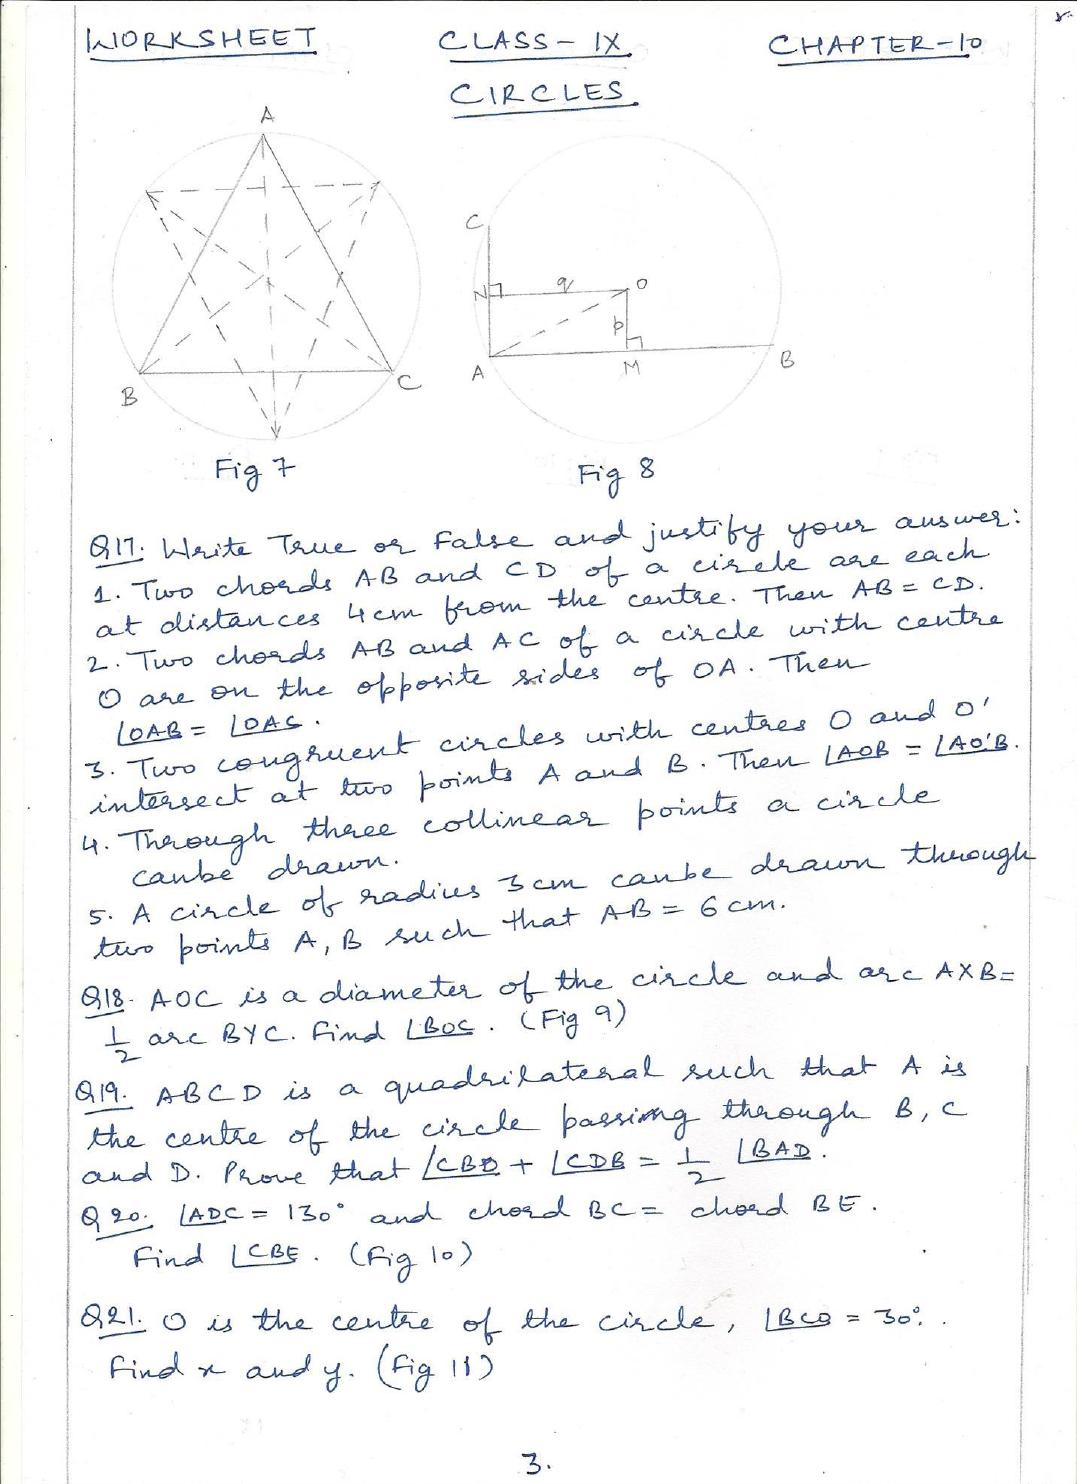 WORKSHEET CLASS-IX CHAPTER-10
CIRCLES
A
B
C
Fig 7
C
N
q
O
p
A
M
B
Fig 8
Q17. Write True or False and justify your answer:
1. Two chords AB and CD of a circle are each
at distances 4cm from the centre. Then AB = CD.
2. Two chords AB and AC of a circle with centre
O are on the opposite sides of OA. Then
∠OAB = ∠OAC.
3. Two congruent circles with centres O and O'
intersect at two points A and B. Then ∠AOB = ∠AO'B.
4. Through three collinear points a circle
can be drawn.
5. A circle of radius 3cm can be drawn through
two points A, B such that AB = 6 cm.
Q18. AOC is a diameter of the circle and arc AXB =
1/2 arc BYC. Find ∠BOC. (Fig 9)
Q19. ABCD is a quadrilateral such that A is
the centre of the circle passing through B, C
and D. Prove that ∠CBD + ∠CDB = 1/2 ∠BAD.
Q20. ∠ADC = 130° and chord BC = chord BE.
Find ∠CBE. (Fig 10)
Q21. O is the centre of the circle, ∠BCO = 30°.
Find x and y. (Fig 11)
3.